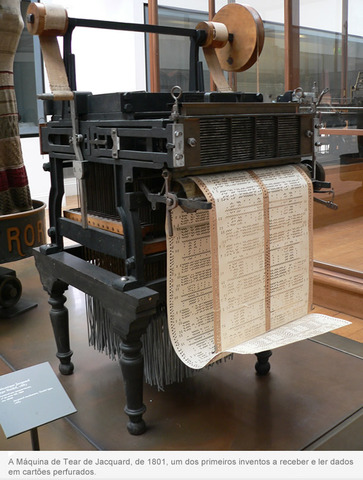 ROR
A Máquina de Tear de Jacquard, de 1801, um dos primeiros inventos a receber e ler dados
em cartões perfurados.